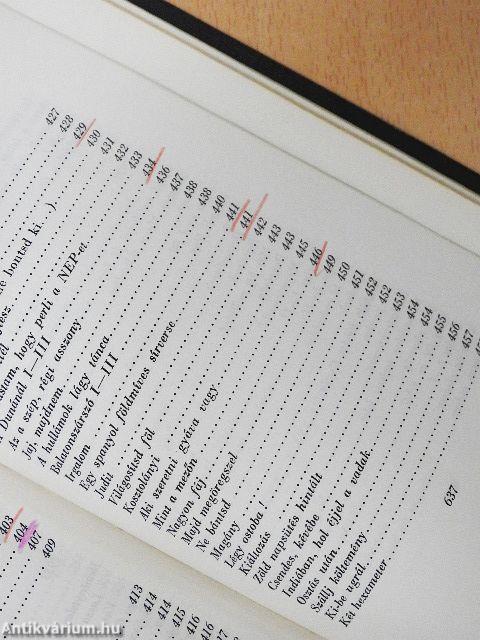 427
428
429
430
431
432
433
434
436
437
438
438
440
441
441
442
443
443
445
446
449
450
451
452
452
453
454
454
455
456
457
bontsd ki. . .)
hogy perli a NEP-et
Dunánál I—III
Az a szép, régi asszony
Jaj, majdnem
A hullámok lágy tánca
Balatonszárszó I—III
Irgalom
Egy spanyol földmíves sírverse
Judit
Világosítsd föl
Kosztolányi
Aki szeretni gyáva vagy
Mint a mezőn
Nagyon fáj
Majd megöregszel
Ne bántsd
Magány
Légy ostoba!
Kiáltozás
Zöld napsütés hintált
Csendes, kévébe
Indiában, hol éjjel a vadak
Osztás után
Szállj költemény
Ki-be ugrál
Két hexameter
637
403
404
407
409
413
414
414
415
416
Antikvárium.hu